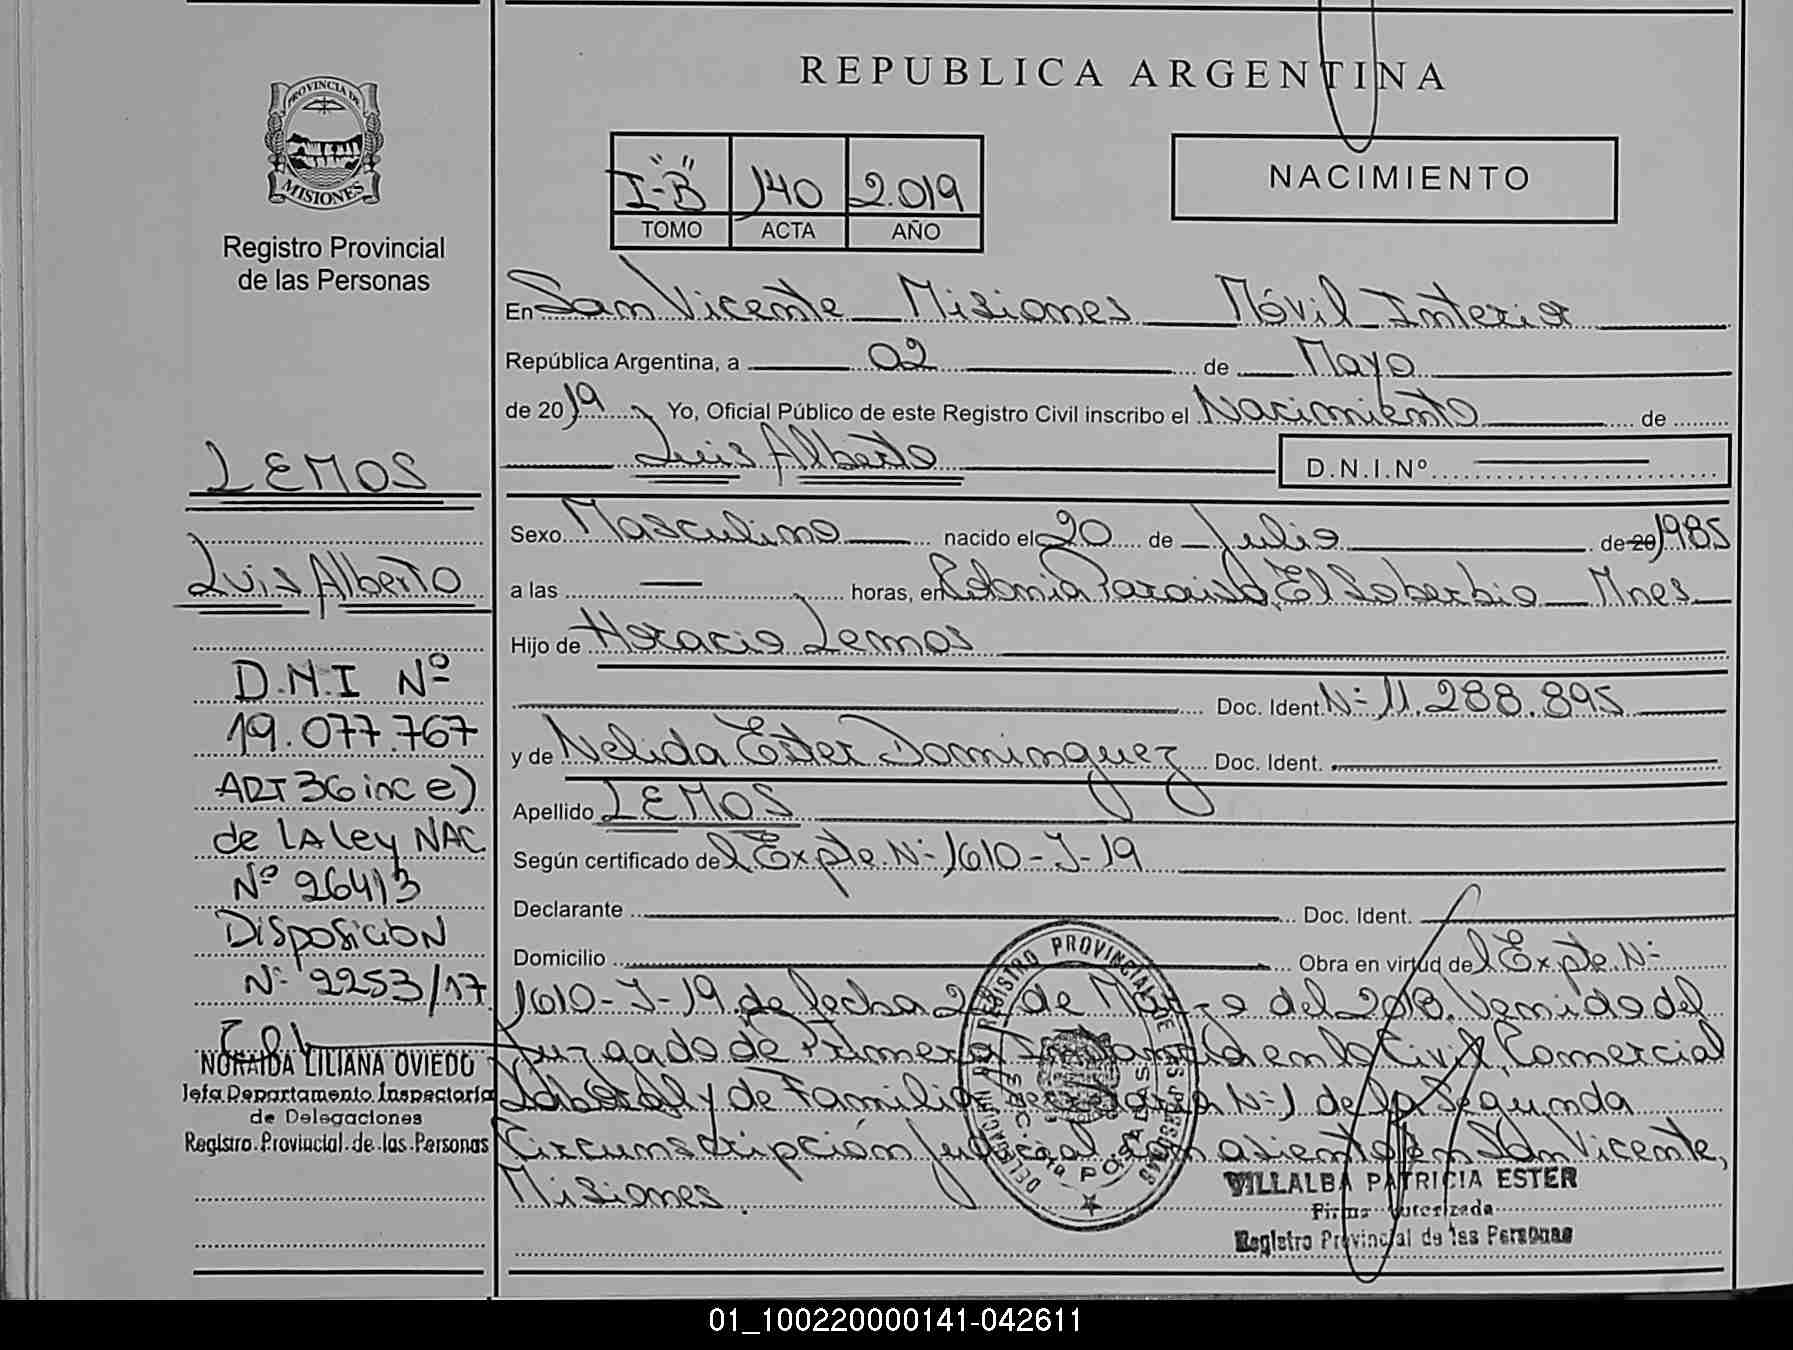 PROVINCIA DE
MISIONES
Registro Provincial
de las Personas
LEMOS
Luis Alberto
D.N.I Nº
19.077.767
ART 36 inc e)
de LA Ley NAC
Nº 26413
Disposición
Nº 2253/17
NORAIDA LILIANA OVIEDO
Jefa Departamento Inspectoría
de Delegaciones
Registro Provincial de las Personas
REPUBLICA ARGENTINA
NACIMIENTO
I-"B" 140 2.019
TOMO ACTA AÑO
En San Vicente Misiones Móvil Interior
República Argentina, a 02 de Mayo
de 2019 Yo, Oficial Público de este Registro Civil inscribo el Nacimiento de
Luis Alberto D.N.I.Nº
Sexo Masculino nacido el 20 de Julio de 20 1985
a las horas, en Colonia Paraiso, El Soberbio Mnes
Hijo de Horacio Lemos
Doc. Ident. Nº 11.288.895
y de Nelida Ester Dominguez Doc. Ident.
Apellido LEMOS
Según certificado del Expte. Nº 1610-J-19
Declarante Doc. Ident.
Domicilio Obra en virtud del Expte. Nº
1610-J-19 de fecha de del 2018. Venido del
Juzgado de Primera Instancia en lo Civil, Comercial
Laboral y de Familia Secretaria Nº 1 de la Segunda
Circunscripción Judicial con asiento en San Vicente,
Misiones.
REGISTRO PROVINCIAL DE LAS PERSONAS
POSADAS
VILLALBA PATRICIA ESTER
Firma Autorizada
Registro Provincial de las Personas
01_100220000141-042611